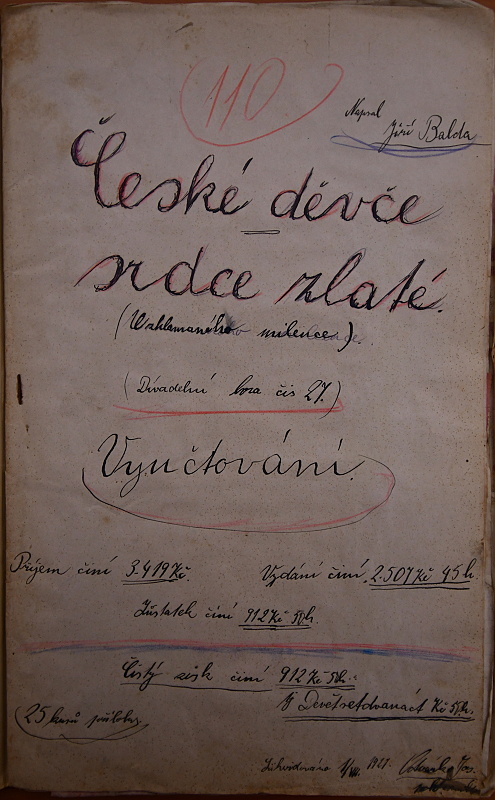 110
Napsal
Jiří Balda
České děvče
srdce zlaté.
milence).
(Divadelní hra čís 27.)
Vyúčtování.
Příjem činí 3.419 Kč. Vydání činí 2.507 Kč 45 h.
Zůstatek činí 912 Kč 50 h.
Čistý zisk činí 912 Kč 50 h.
Devětsetdvanáct Kč 50 h.
25 kusů příloh.
Likvidováno